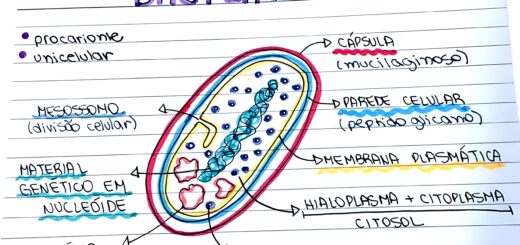 • procarionte
• unicelular
CÁPSULA
(mucilaginoso)
MESOSSOMO
(divisão celular)
PAREDE CELULAR
(peptidoglicano)
MEMBRANA PLASMÁTICA
MATERIAL
GENÉTICO EM
NUCLEÓIDE
HIALOPLASMA + CITOPLASMA
CITOSOL